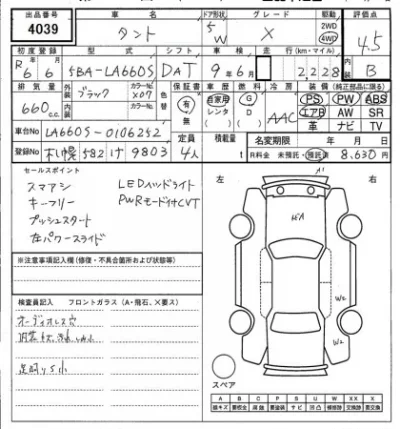 出品番号
4039
車名
タント
ドア形状
5
W
グレード
X
駆動
2WD
4WD
評価点
4.5
初度登録
R6 6
型式
5BA-LA660S
シフト
DAT
車検
9年6月
走行(km・マイル)
2,228
内装
B
排気量
660cc
外装
ブラック
カラーNo.
X07
内装
カラーNo.
色替
保証書
有
無
車歴
自家用
レンタ
( )
燃料
G
D
( )
冷房
AAC
装備(純正部品に限る)
PS PW ABS
エアB AW SR
革 ナビ TV
車台No
LA660S-0106252
登録No
札幌 582 け 9803
定員
4人
積載量
t
名変期限 年 月 日
R料金 未預託・預託済 8,630円
セールスポイント
スマアシ LEDヘッドライト
キーフリー PWRモード付CVT
プッシュスタート
左パワースライド
左
右
A1
W2
W2
※注意事項記入欄(修復・不具合箇所および状態等)
検査員記入 フロントガラス(A・飛石、X要ス)
オーディオレス穴
スペア
A B C P S U W X XX